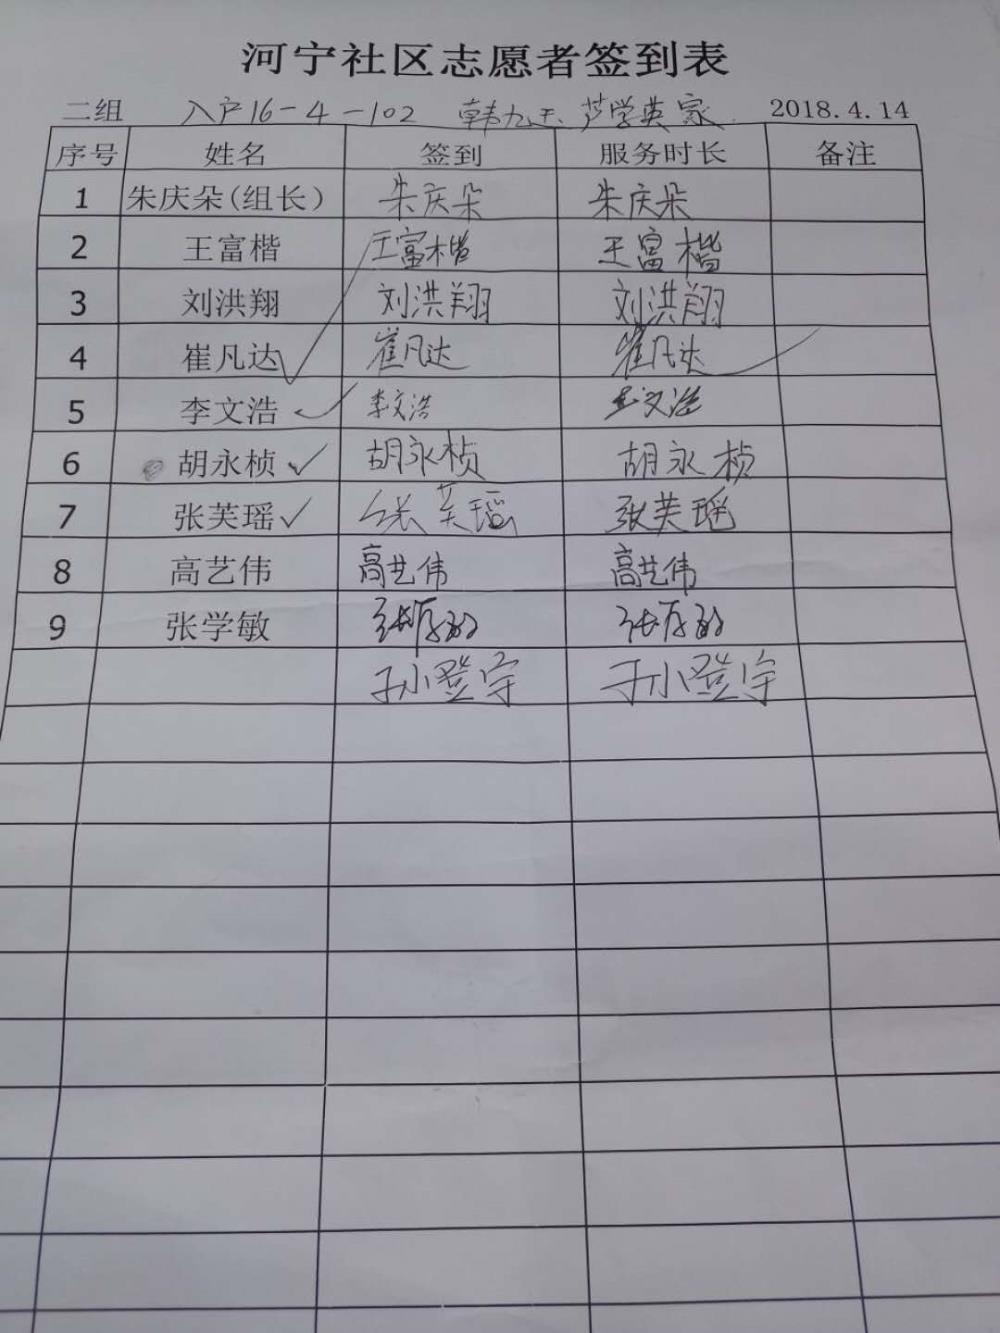 河宁社区志愿者签到表
二组 入户16-4-102 韩九天、芦学英家 2018.4.14
序号 姓名 签到 服务时长 备注
1 朱庆朵(组长) 朱庆朵 朱庆朵
2 王富楷 王富楷 王富楷
3 刘洪翔 刘洪翔 刘洪翔
4 崔凡达 崔凡达 崔凡达
5 李文浩 李文浩 李文浩
6 胡永桢 胡永桢 胡永桢
7 张芙瑶 张芙瑶 张芙瑶
8 高艺伟 高艺伟 高艺伟
9 张学敏 张学敏 张学敏
孙登宇 孙登宇